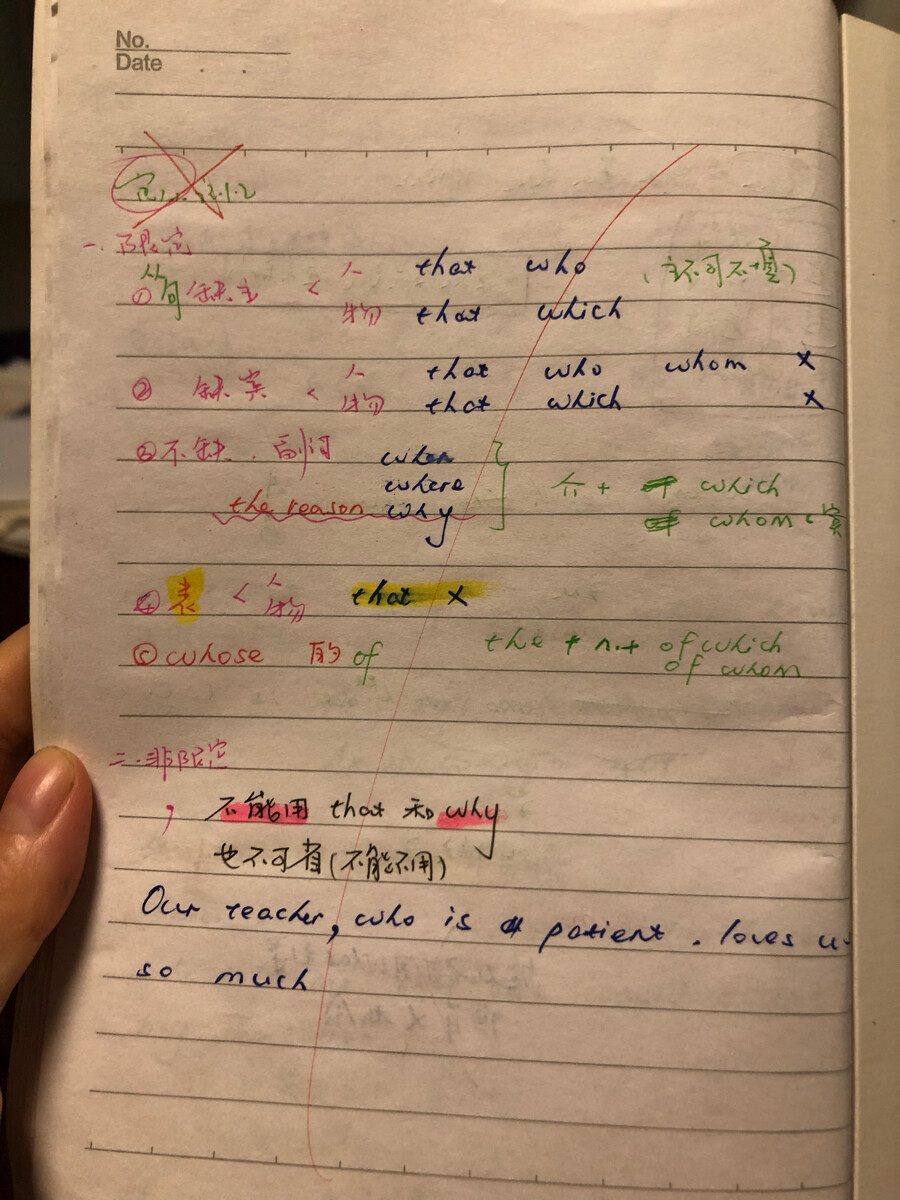 No.
Date
3.1.2
一. 限定
① 句缺主 < 人 that who (主不可不+ )
物 that which
② 缺宾 < 人 that who whom ×
物 that which ×
③ 不缺. 副词 when
where
the reason why
介 + which
whom (宾
④ 表 < 人 物 that ×
⑤ whose 的 of the + n.+ of which
of whom
二. 非限定
, 不能用 that 和 why
也不可省(不能不用)
Our teacher, who is patient. loves u
so much